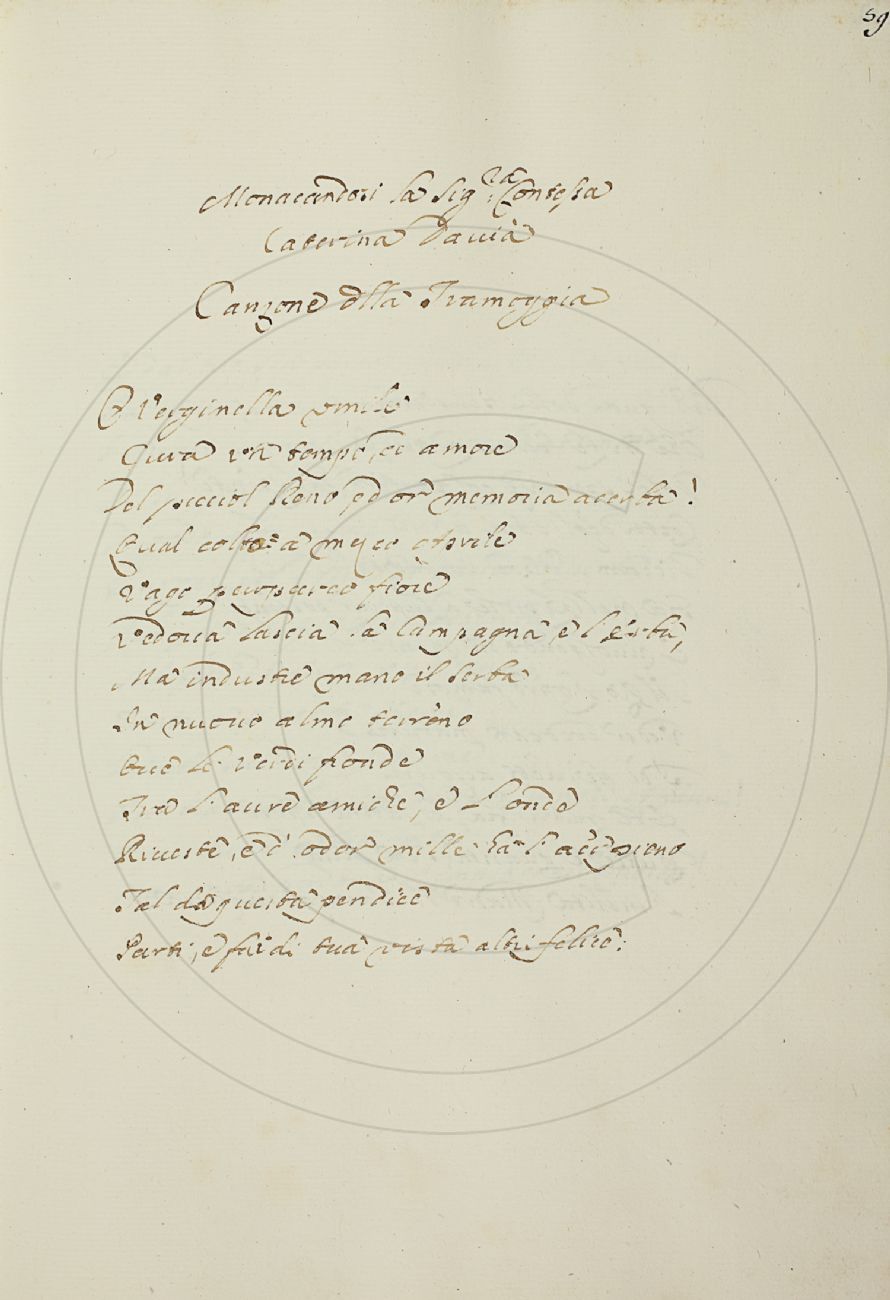 59
Monacandosi la Sig.ra Contessa
Caterina Davià
Canzone dlla Tramoggia
O Verginella umile
Cura un tempo, ed amore
Del picciol Reno, ed or memoria acerba!
Qual colto a mezzo Aprile
Vago fiore
Vedova lascia la Campagna, e l'erba,
Ma industre mano il serba
In nuovo almo terreno
Ove le verdi fronde
Tra l'aure amiche, e l'onde
Riveste, e d'odor mille ha l' pieno
Tal da questa pendice
Parti, e fai di tua vista altri felice: